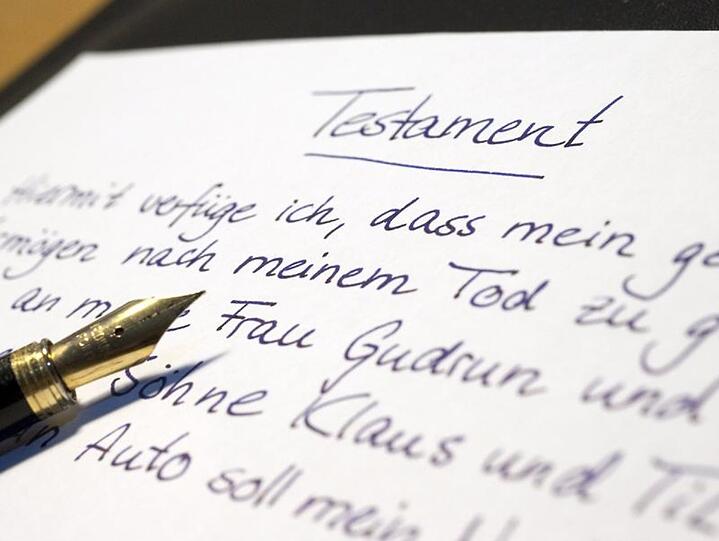 Testament
Hiermit verfüge ich, dass mein ge
rmögen nach meinem Tod zu g
an m e Frau Gudrun und
Söhne Klaus und Ti
n Auto soll mein